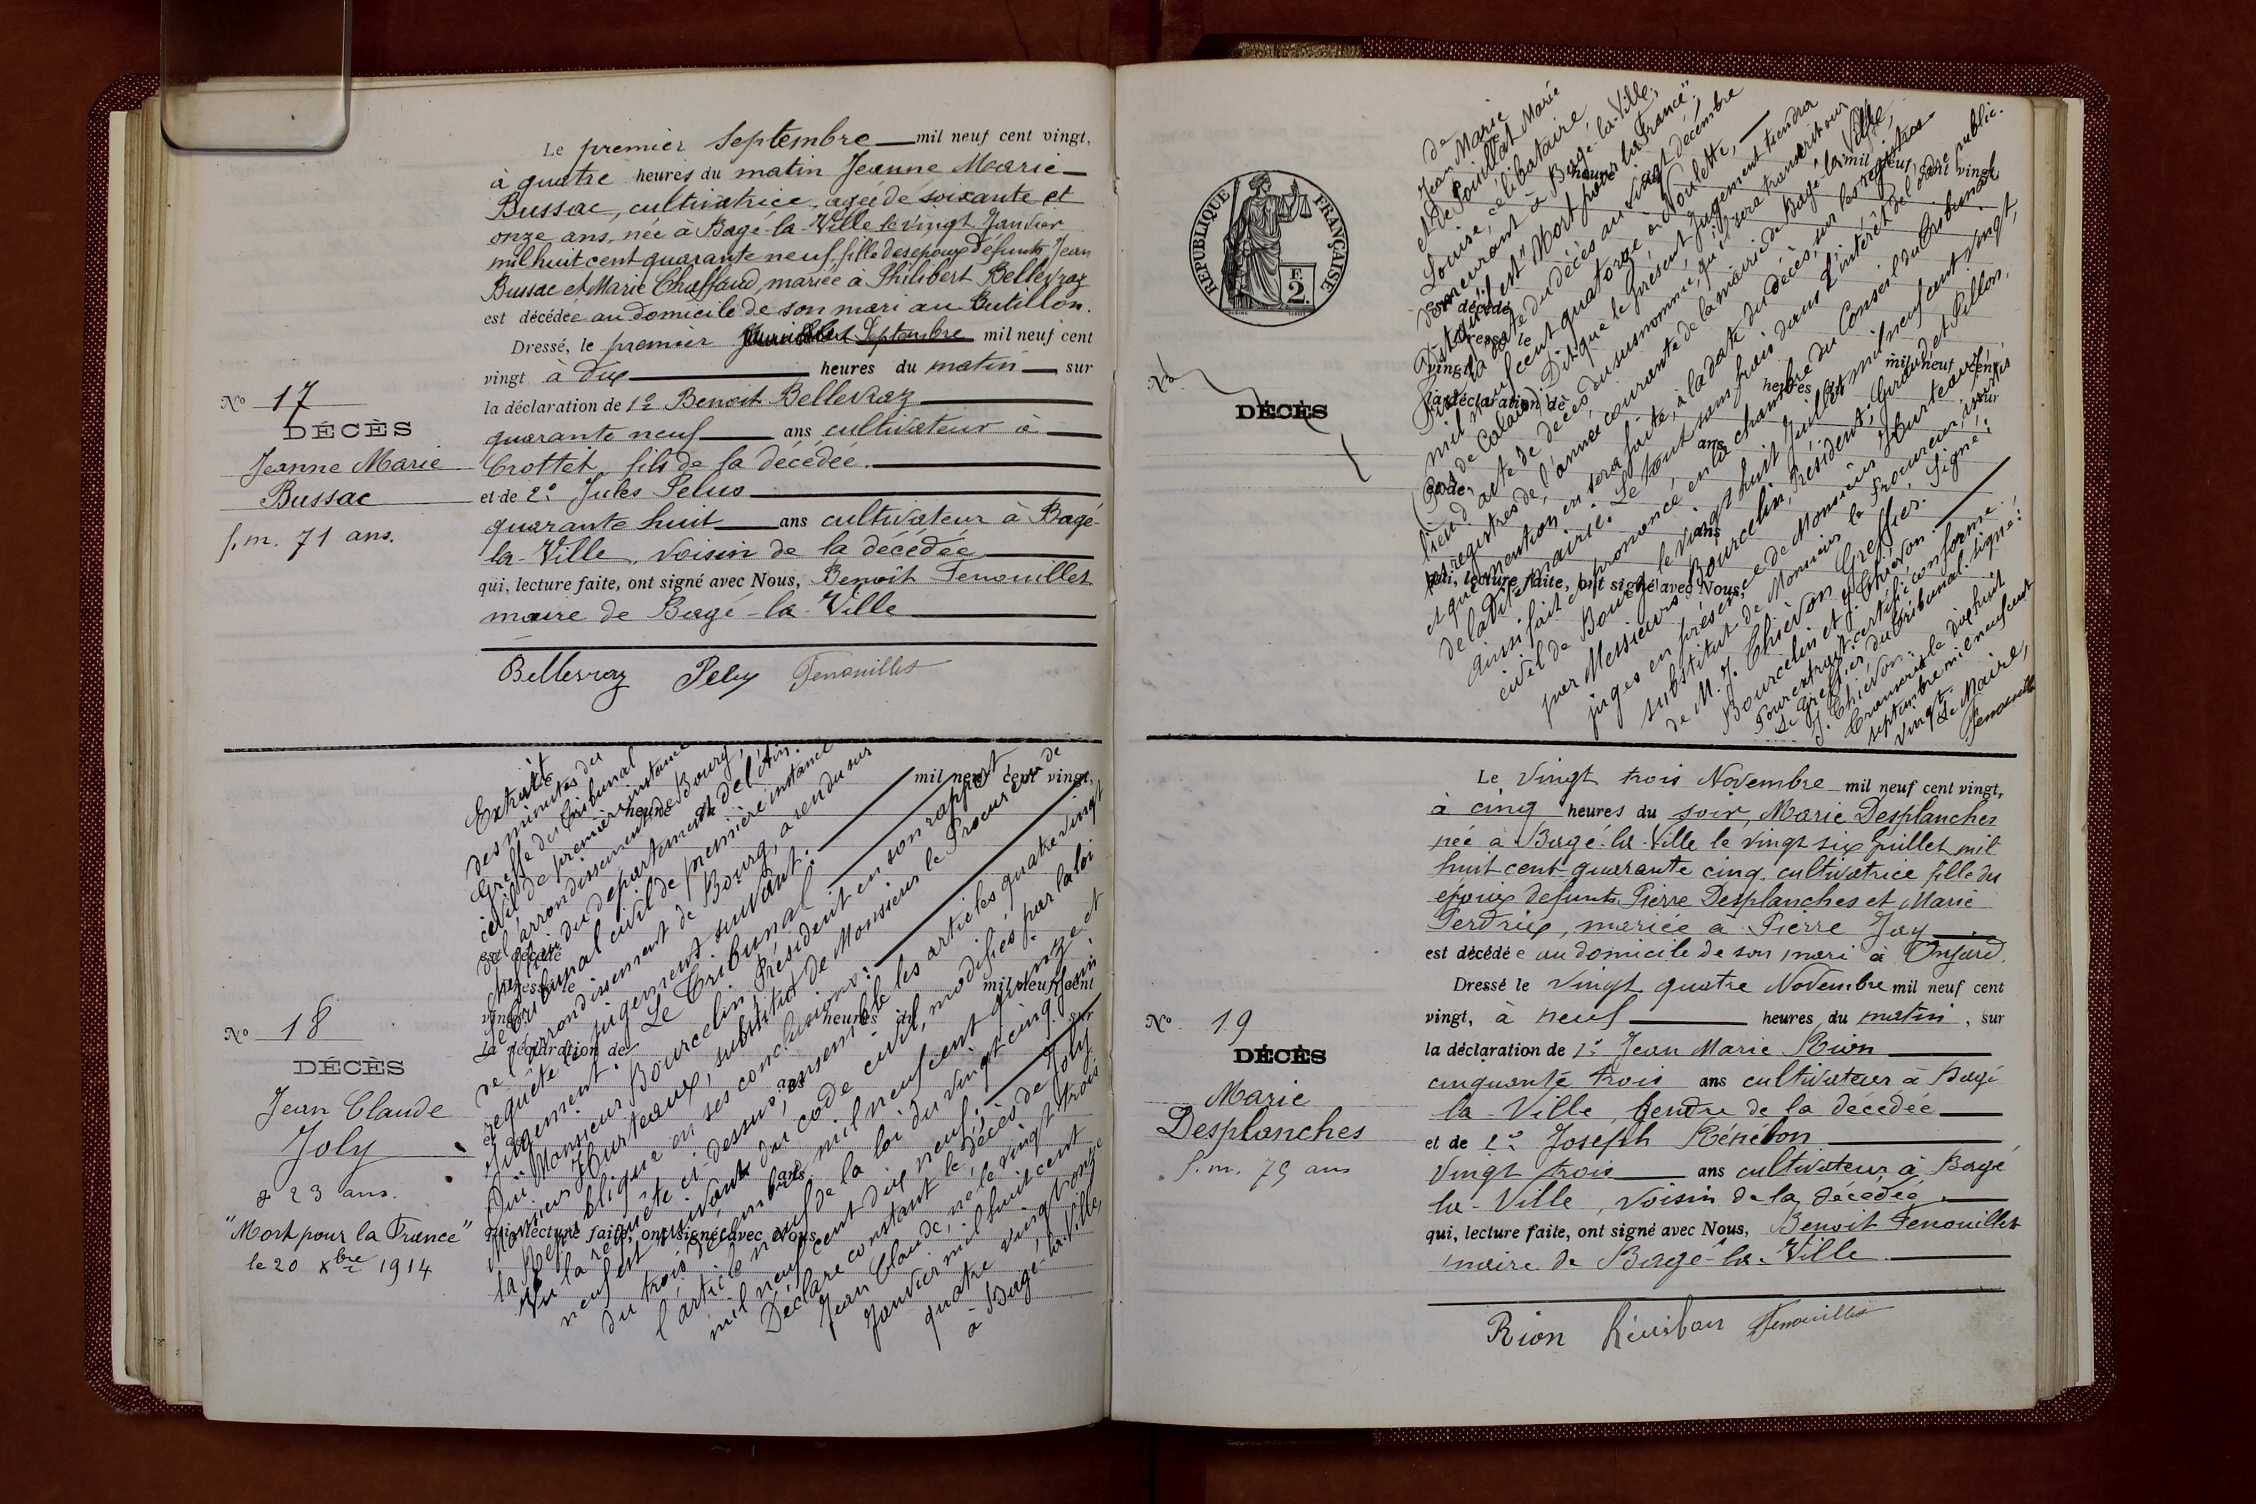 Le premier Septembre mil neuf cent vingt,
à quatre heures du matin Jeanne Marie
Bussac, cultivatrice, agée de soixante et
onze ans, née à Bagé-la-Ville le vingt Janvier
mil huit cent quarante neuf, fille des époux défunts Jean
Bussac et Marie Chaffaud, mariée à Philibert Bellevraz
est décédée au domicile de son mari au Butillon.
Dressé, le premier Septembre mil neuf cent
vingt à dix heures du matin sur
la déclaration de 1º Benoit Bellevraz
quarante neuf ans cultivateur à
Crottet, fils de la décédée.
et de 2º Jules Pelus
quarante huit ans cultivateur à Bagé-
la-Ville, voisin de la décédée
qui, lecture faite, ont signé avec Nous, Benoît Fenouillet
maire de Bagé-la-Ville
Bellevraz Peluy Fenouillet
Nº 17
DÉCÈS
Jeanne Marie
Bussac
f.m. 71 ans.
Nº 18
DÉCÈS
Jean Claude
Joly
23 ans.
"Mort pour la France"
le 20 Xbre 1914
mil neuf cent vingt,
heures du
est décédé
Dressé le
vingt
mil neuf cent
heures du
sur
la déclaration de
ans
et de
qui, lecture faite, ont signé avec Nous,
Extrait
des minutes du
Greffe du Tribunal
civil de première instance
de l'arrondissement de Bourg,
chef-lieu du département de l'Ain.
Le Tribunal civil de première instance
de l'arrondissement de Bourg, a rendu sur
requête le jugement suivant.
Jugement. Le Tribunal
Ouï Monsieur Bourcelin Président en son rapport
Monsieur Hurteaux, substitut de Monsieur le Procureur de
la République en ses conclusions:
Vu la requête ci-dessus, ensemble les articles quatre vingt
neuf et suivant du code civil, modifiés par la loi
du trois décembre mil neuf cent quinze et
l'article neuf de la loi du vingt cinq juin
mil neuf cent dix neuf.
Déclare constant le décès de Joly
Jean Claude, né le vingt trois
Janvier mil huit cent
quatre vingt onze
à Bagé-la-Ville,
RÉPUBLIQUE FRANÇAISE
F.
2.
Nº
DÉCÈS
mil neuf cent vingt
heures du
est décédé
Dressé le
vingt
mil neuf cent
heures du
sur
la déclaration de
ans
et de
ans
qui, lecture faite, ont signé avec Nous,
de
Jean Marie
et de Pouillat Marie
Louise, célibataire
demeurant à Bagé-la-Ville,
Dit qu'il est "Mort pour la France".
Fixe la date du décès au vingt décembre
mil neuf cent quatorze à Noulette,
(Pas de Calais). Dit que le présent jugement tiendra
lieu d'acte de décès du susnommé, qu'il sera transcrit sur
les registres de l'année courante de la mairie de Bagé-la-Ville,
et que mention en sera faite, à la date du décès, sur les registres
de ladite mairie. Le tout sans frais dans l'intérêt de l'ordre public.
Ainsi fait et prononcé en la chambre du Conseil du Tribunal
civil de Bourg, le vingt huit Juillet mil neuf cent vingt,
par Messieurs Bourcelin, Président, Giraud et Pillon,
juges en présence de Monsieur Hurteaux,
substitut de Monsieur le Procureur, assistés
de M. J. Chiévon Greffier. Signé:
Bourcelin et J. Chiévon.
Pour extrait certifié conforme
Le Greffier du Tribunal. signé:
J. Chiévon.
Transcrit le dix huit
septembre mil neuf cent
vingt.
Le Maire,
Fenouillet
Le vingt trois Novembre mil neuf cent vingt,
à cinq heures du soir, Marie Desplanches
née à Bagé-la-Ville le vingt six Juillet mil
huit cent quarante cinq, cultivatrice fille des
époux défunts Pierre Desplanches et Marie
Perdrix, mariée à Pierre Jay
est décédée au domicile de son mari à Onjard.
Dressé le vingt quatre Novembre mil neuf cent
vingt, à neuf heures du matin, sur
la déclaration de 1º Jean Marie Rion
cinquante trois ans cultivateur à Bagé
la-Ville, gendre de la décédée
et de 2º Joseph Rénébon
vingt trois ans cultivateur à Bagé
la-Ville, voisin de la décédée.
qui, lecture faite, ont signé avec Nous, Benoit Fenouillet
maire de Bagé-la-Ville
Rion Fenouillet
Nº 19
DÉCÈS
Marie
Desplanches
f.m. 75 ans